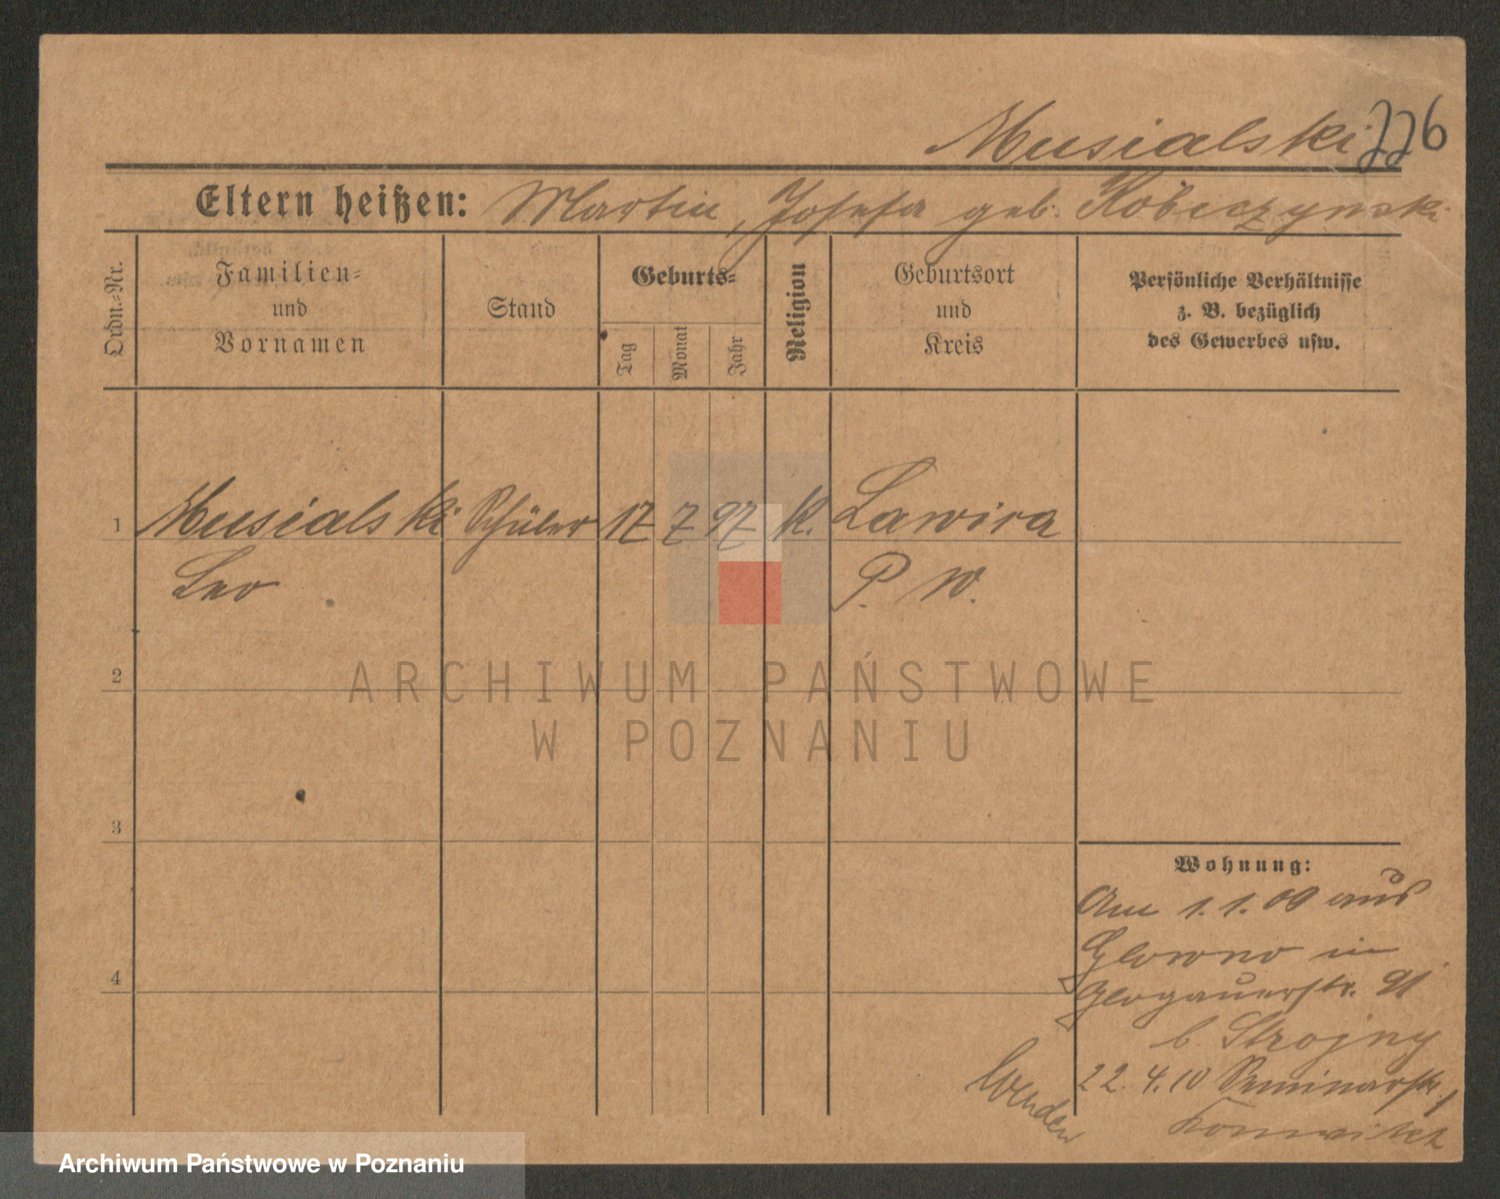 Musialski 226
Eltern heißen: Martin, Josefa geb.
Ordn.-Nr.
Familien-
und
Vornamen
Stand
Geburts-
Tag
Monat
Jahr
Religion
Geburtsort
und
Kreis
Persönliche Verhältnisse
z. B. bezüglich
des Gewerbes usw.
1 Musialski Schüler 17 7 97 k. Lawica
Leo P. W.
2
3
4
ARCHIWUM PAŃSTWOWE
W POZNANIU
Wohnung:
Am 1.1.09 aus
Glowno in
Glogauerstr. 91
b. Strojny
22.4.10 Seminarstr. 1
Wenden
Archiwum Państwowe w Poznaniu